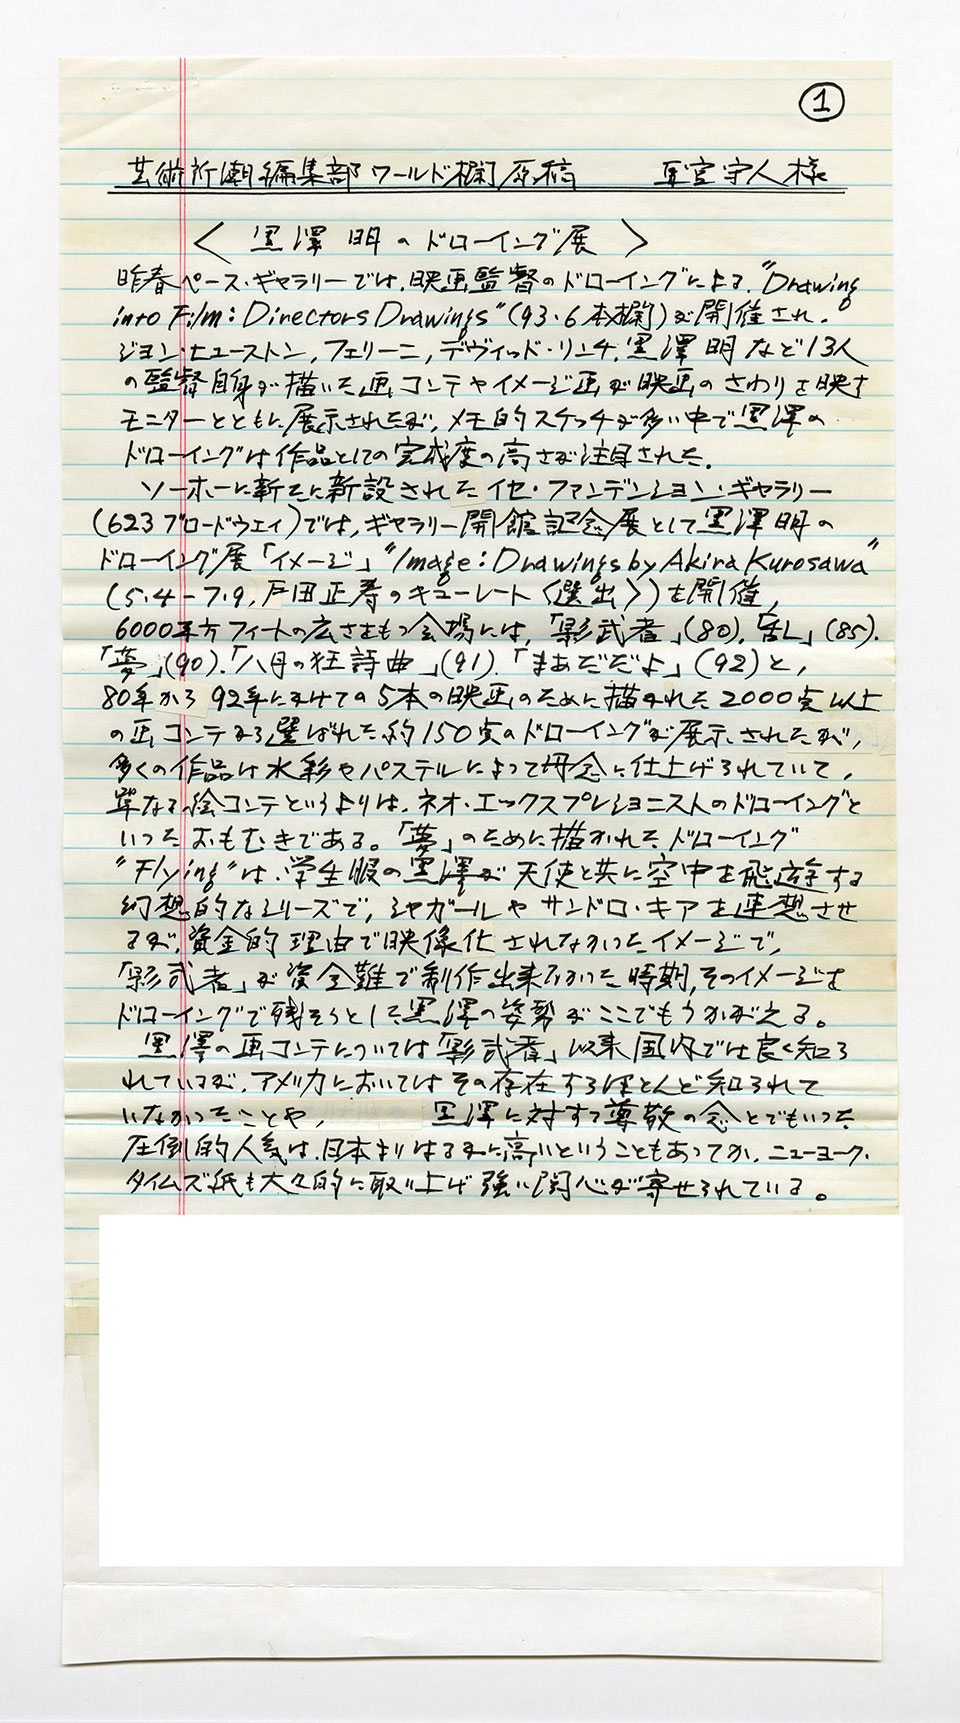 ①
芸術新潮編集部ワールド欄原稿 守人様
〈 黒澤明のドローイング展 〉
昨春ペース・ギャラリーでは、映画監督のドローイングによる、"Drawing
into Film: Directors Drawings"(93・6本欄)が開催され、
ジョン・ヒューストン、フェリーニ、デヴィッド・リンチ、黒澤明など13人
の監督自身が描いた画コンテやイメージ画が映画のさわりを映す
モニターとともに展示されたが、メモ的スケッチが多い中で黒澤の
ドローイングは作品としての完成度の高さが注目された。
ソーホーに新たに新設されたイセ・ファンデンション・ギャラリー
(623ブロードウェイ)では、ギャラリー開館記念展として黒澤明の
ドローイング展「イメージ」"Image: Drawings by Akira Kurosawa"
(5.4-7.9,戸田正寿のキューレート〈選出〉)を開催、
6000平方フィートの広さをもつ会場には、「影武者」(80)、「乱」(85)、
「夢」(90)、「八月の狂詩曲」(91)、「まあだだよ」(92)と、
80年から92年にかけての5本の映画のために描かれた2000点以上
の画コンテから選ばれた約150点のドローイングが展示されたが、
多くの作品は水彩やパステルによって丹念に仕上げられていて、
単なる絵コンテというよりは、ネオ・エックスプレショニストのドローイングと
いったおもむきである。「夢」のために描かれたドローイング
"Flying"は、学生服の黒澤が天使と共に空中を飛遊する
幻想的なシリーズで、シャガールやサンドロ・キアを連想させ
るが、資金的理由で映像化されなかったイメージで、
「影武者」が資金難で制作出来なかった時期、そのイメージを
ドローイングで残そうとした黒澤の姿勢がここでもうかがえる。
黒澤の画コンテについては「影武者」以来国内では良く知ら
れているが、アメリカにおいてはその存在すらほとんど知られて
いなかったことや、 黒澤に対する尊敬の念とでもいった
圧倒的人気は、日本よりはるかに高いということもあってか、ニューヨーク・
タイムズ紙も大々的に取り上げ強い関心が寄せられている。